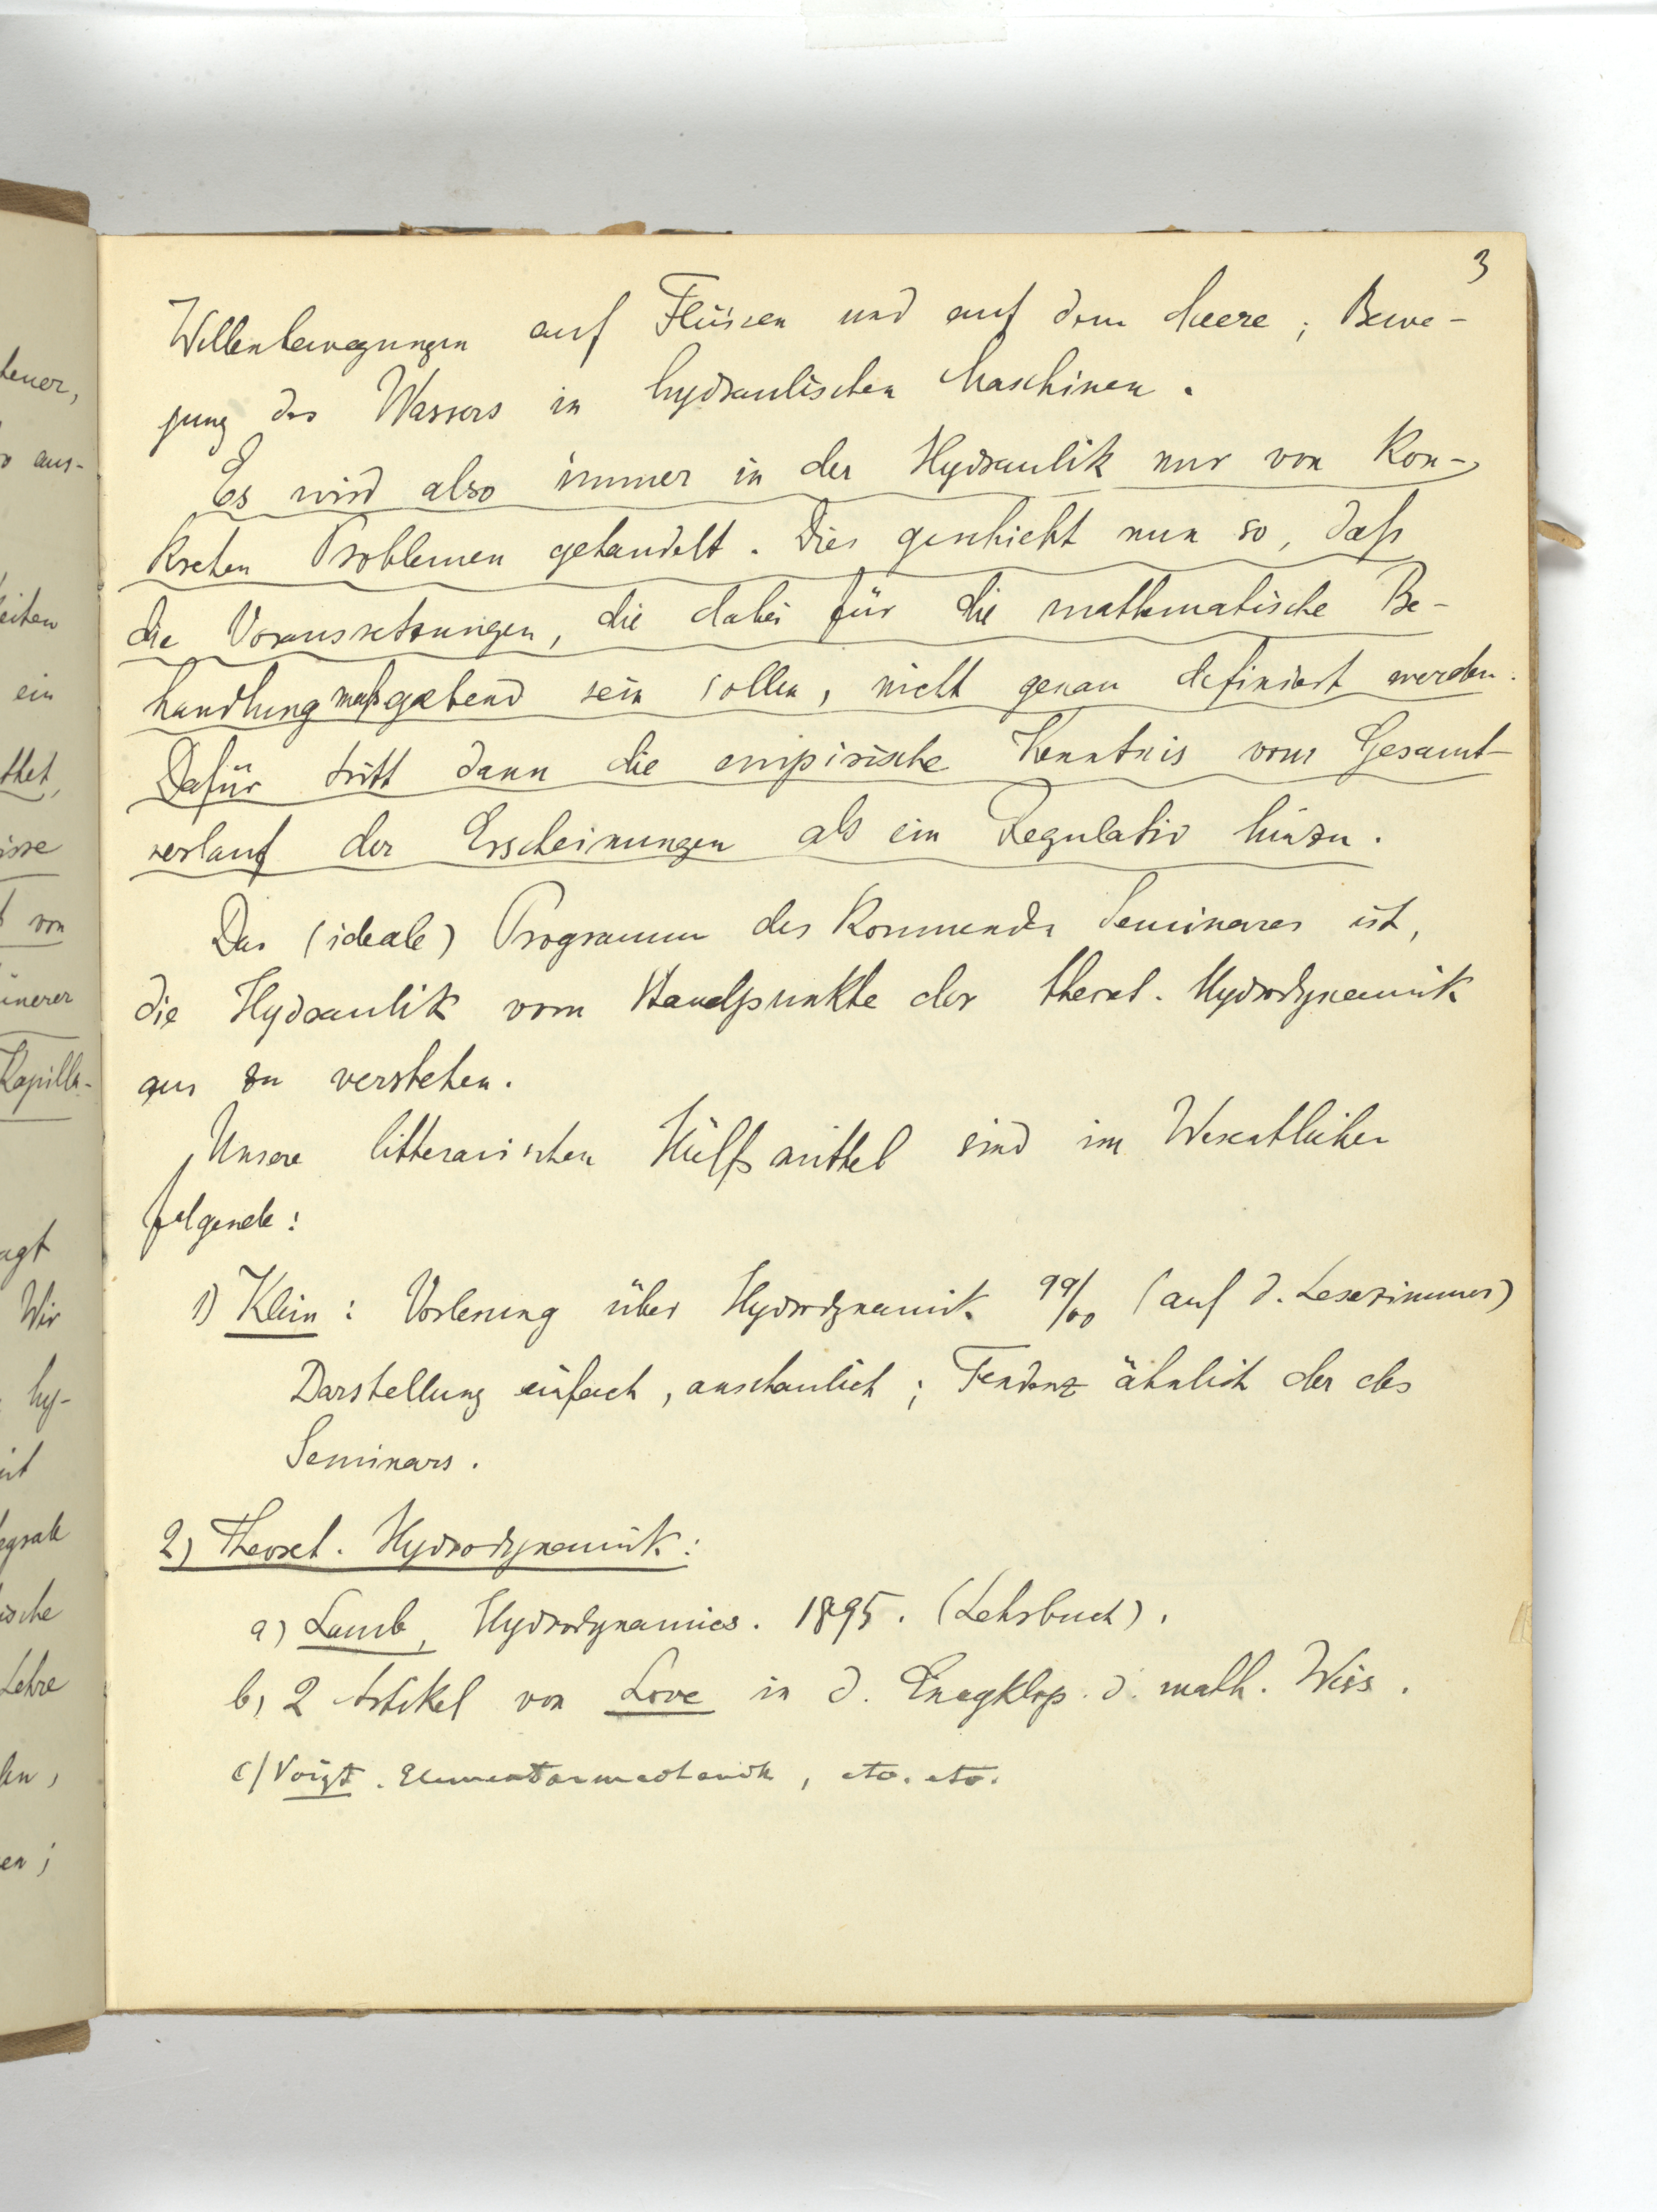 3
Wellenbewegungen auf Flüssen und auf dem Meere; Bewe-
gung des Wassers in hydraulischen Maschinen.
Es wird also immer in der Hydraulik nur von kon-
kreten Problemen gehandelt. Dies geschieht nun so, daß
die Voraussetzungen, die dabei für die mathematische Be-
handlung maßgebend sein sollen, nicht genau definiert werden.
Dafür tritt dann die empirische Kenntnis vom Gesamt-
verlauf der Erscheinungen als ein Regulativ hinzu.
Das (ideale) Programm des kommenden Seminares ist,
die Hydraulik vom Standpunkte der theoret. Hydrodynamik
aus zu verstehen.
Unsere litterarischen Hülfsmittel sind im Wesentlichen
folgende:
1) Klein: Vorlesung über Hydrodynamik 99/00 (auf d. Lesezimmer)
Darstellung einfach, anschaulich; Tendenz ähnlich der des
Seminars.
2) Theoret. Hydrodynamik:
a) Lamb, Hydrodynamics. 1895. (Lehrbuch).
b) 2 Artikel von Love in d. Encyklop. d. math. Wiss.
c) Voigt. Elementarmechanik, etc. etc.